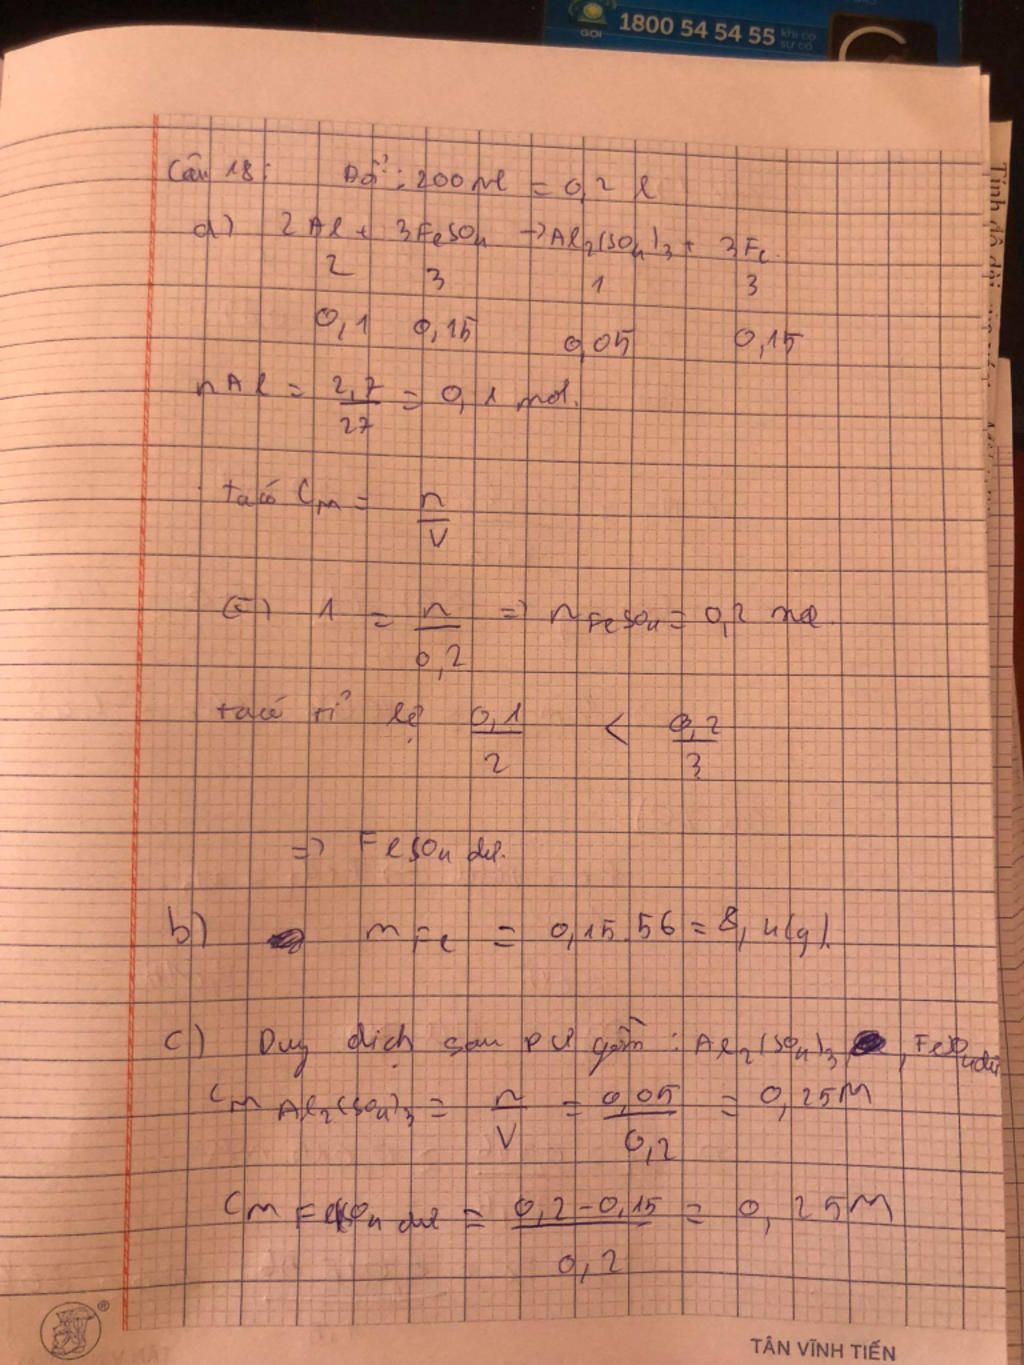 GỌI 1800 54 54 55 khi có sự cố
Câu 18: Đổi: 200ml = 0,2 l
a) 2Al + 3FeSO4 → Al2(SO4)3 + 3Fe
2 3 1 3
0,1 0,15 0,05 0,15
nAl = 2,7/27 = 0,1 mol.
ta có CM = n/V
(=) 1 = n/0,2 => nFeSO4 = 0,2 mol.
ta có tỉ lệ 0,1/2 < 0,2/3
=> FeSO4 dư.
b) mFe = 0,15.56 = 8,4(g).
c) Dung dịch sau PƯ gồm: Al2(SO4)3, FeSO4 dư
CM Al2(SO4)3 = n/V = 0,05/0,2 = 0,25M
CM FeSO4 dư = 0,2-0,15/0,2 = 0,25M
®
TÂN VĨNH TIẾN